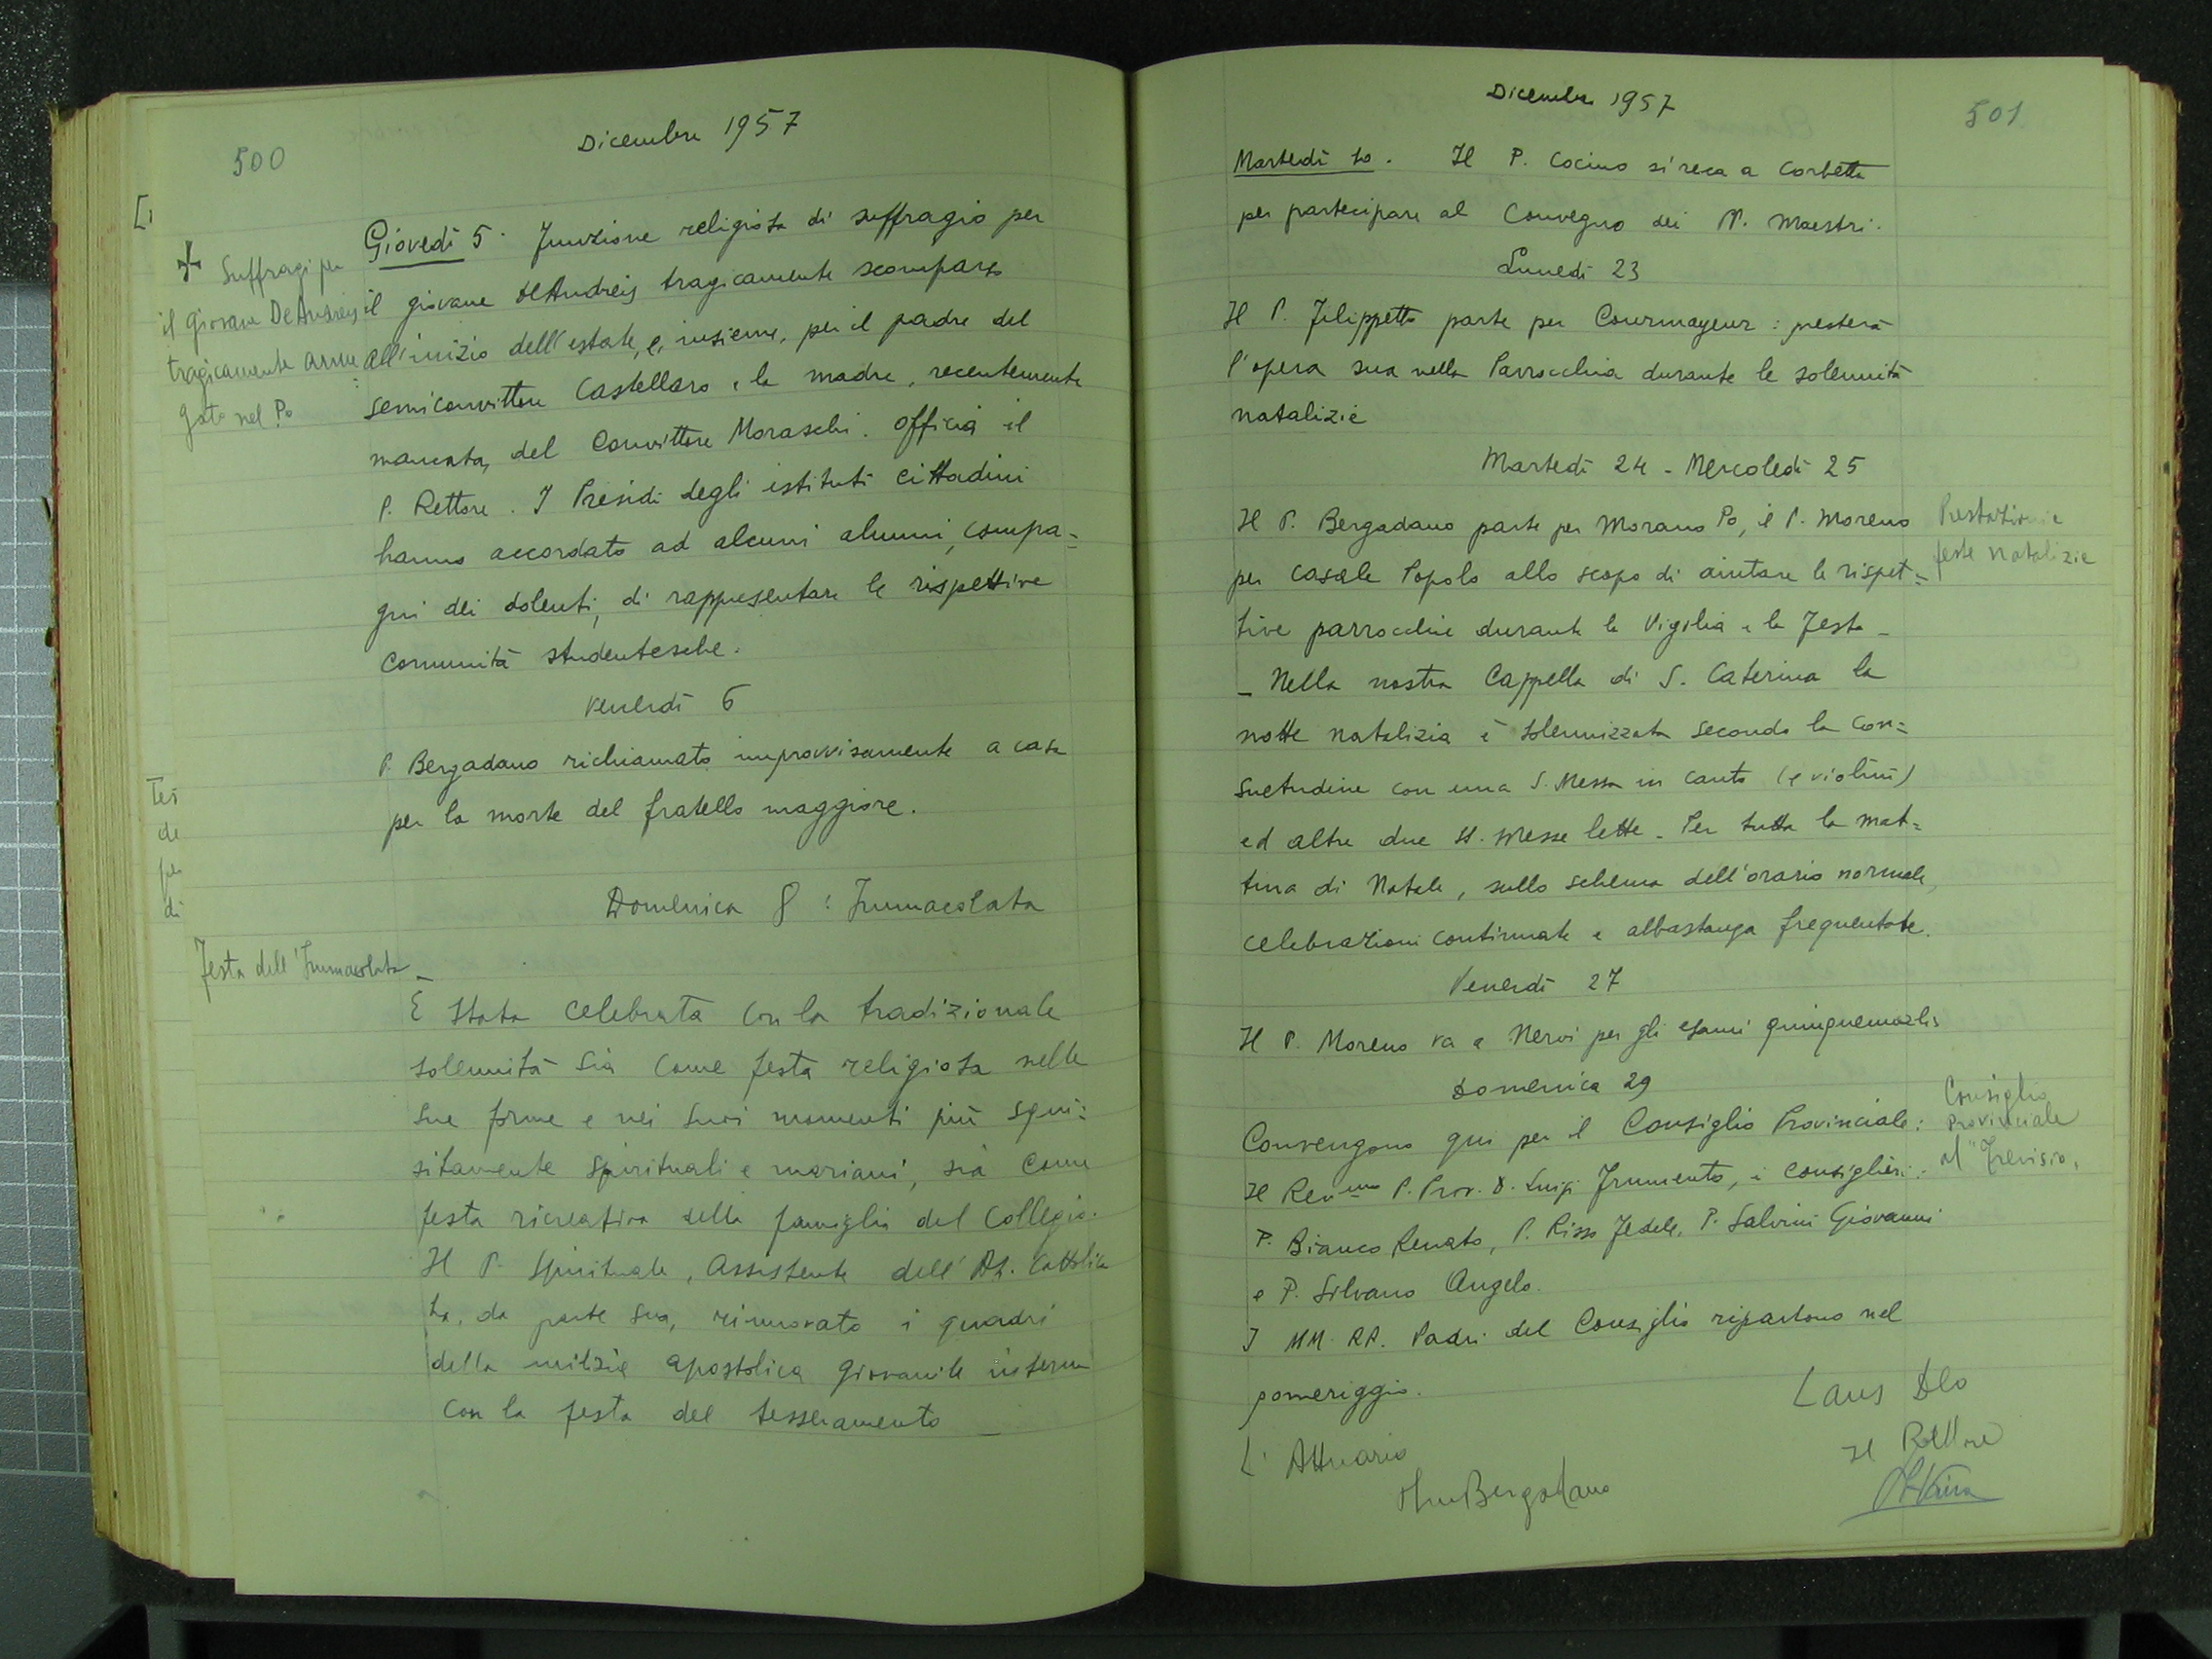 500
Dicembre 1957
+ Suffragi per
il giovane De Andreis
tragicamente anne
gato nel Po
Giovedì 5. Funzione religiosa di suffragio per
il giovane DeAndreis tragicamente scomparso
all'inizio dell'estate, e, insieme, per il padre del
semiconvittore Castellaro e la madre, recentemente
mancata, del Convittore Moraschi. Officia il
P. Rettore. I Presidi degli istituti cittadini
hanno accordato ad alcuni alunni, compa=
gni dei dolenti, di rappresentare le rispettive
comunità studentesche.
Venerdì 6
P. Bergadano richiamato improvvisamente a casa
per la morte del fratello maggiore.
Domenica 8 : Immacolata
Festa dell'Immacolata
È stata celebrata con la tradizionale
solennità sia come festa religiosa nelle
sue forme e nei suoi momenti più squi=
sitamente spirituali e mariani, sia come
festa ricreativa della famiglia del Collegio.
Il P. Spirituale, Assistente dell'Az. Cattolica
ha, da parte sua, rinnovato i quadri
della milizia apostolica giovanile interna
con la festa del tesseramento
Dicembre 1957
501
Martedì 10. Il P. Cocino si reca a Corbetta
per partecipare al Convegno dei PP. Maestri.
Lunedì 23
Il P. Filippetto parte per Courmayeur : presterà
l'opera sua nella Parrocchia durante le solennità
natalizie
Martedì 24 - Mercoledì 25
Il P. Bergadano parte per Morano Po, il P. Moreno
per Casale Popolo allo scopo di aiutare le rispet=
tive parrocchie durante la Vigilia e la Festa -
Prestazioni
feste natalizie
- Nella nostra Cappella di S. Caterina la
notte natalizia è solennizzata secondo la con=
suetudine con una S. Messa in canto (e violini)
ed altre due SS. Messe lette. Per tutta la mat=
tina di Natale, sullo schema dell'orario normale,
celebrazioni continuate e abbastanza frequentate.
Venerdì 27
Il P. Moreno va a Nervi per gli esami quinquennalis
Domenica 29
Convengono qui per il Consiglio Provinciale:
Il Rev.mo P. Prov. D. Luigi Frumento, i Consiglieri:
P. Bianco Renato, P. Risso Fedele, P. Salvini Giovanni
e P. Silvano Angelo.
Consiglio
Provinciale
al "Trevisio"
I MM. RR. Padri del Consiglio ripartono nel
pomeriggio.
Laus Deo
L'Attuario
Bergadano
Il Rettore